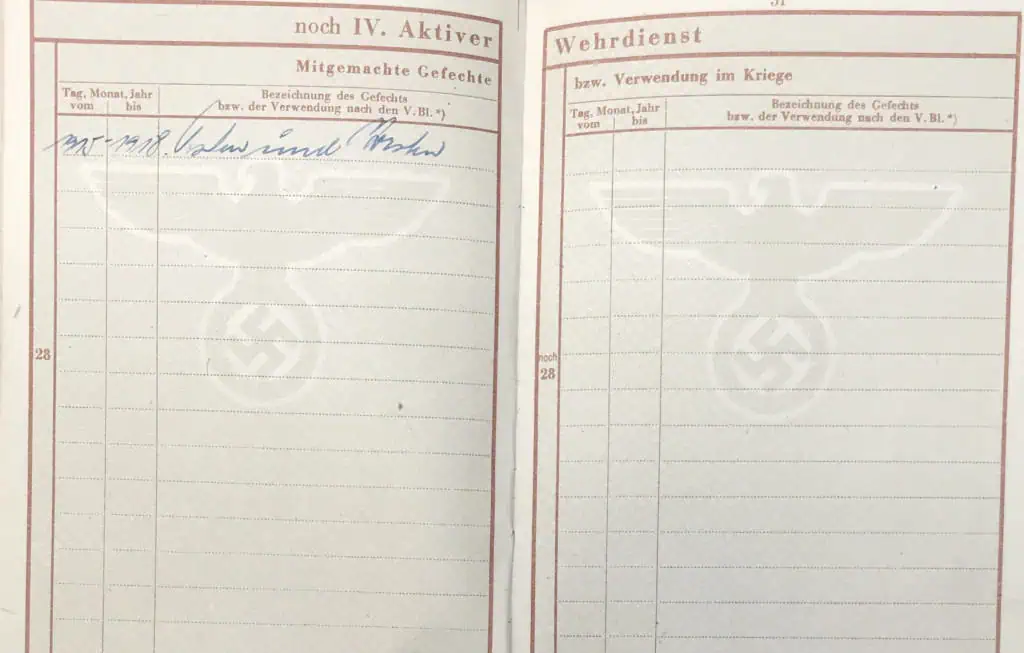 noch IV. Aktiver
Mitgemachte Gefechte
Tag, Monat, Jahr
vom bis
Bezeichnung des Gefechts
bzw. der Verwendung nach den V. Bl. *)
1915-1918. Osten und Westen
28
31
Wehrdienst
bzw. Verwendung im Kriege
Tag, Monat, Jahr
vom bis
Bezeichnung des Gefechts
bzw. der Verwendung nach den V. Bl. *)
noch
28